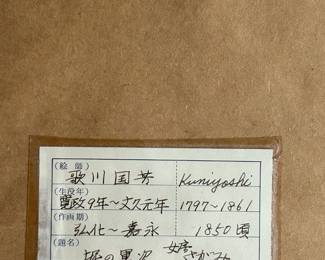 (絵師)
歌川国芳 Kuniyoshi
(生没年)
寛政9年～文久元年 1797～1861
(作画期)
弘化～嘉永 1850頃
(題名)
堀の 女房 さがみ